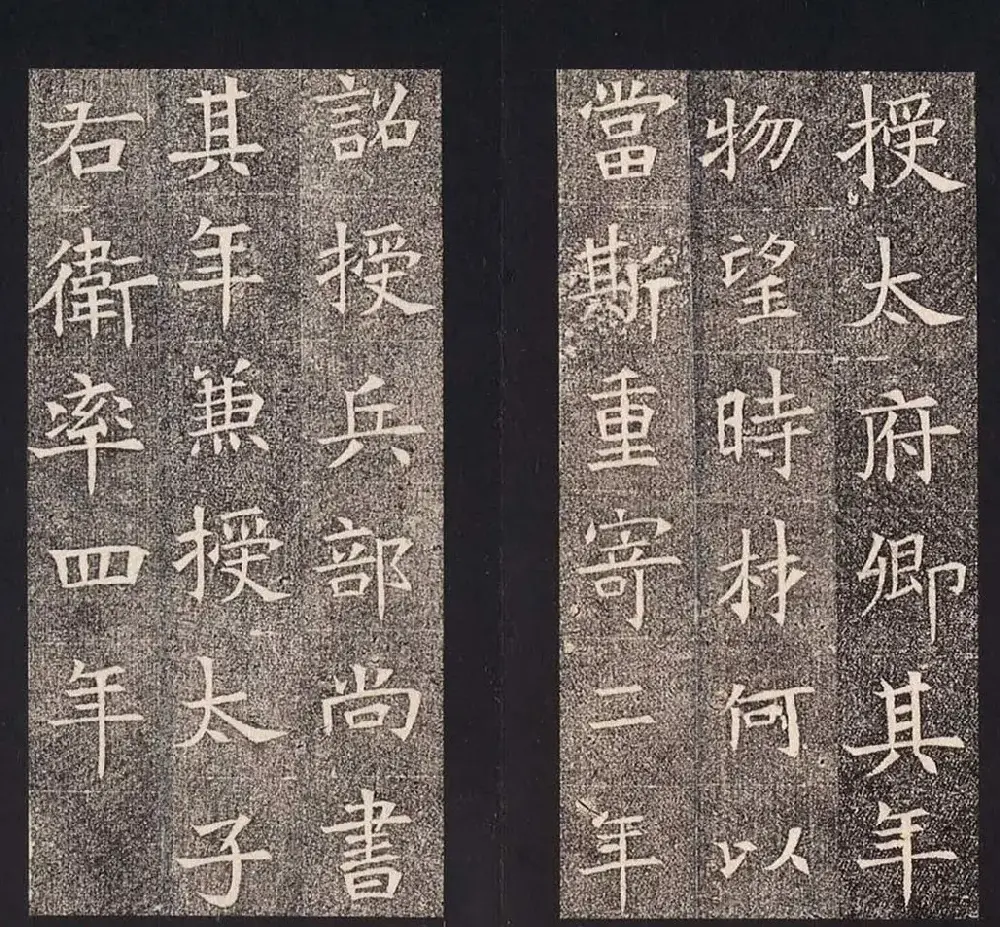 授太府卿其年
物望時材何以
當斯重寄二年
詔授兵部尚書
其年蒹授太子
右衛率四年